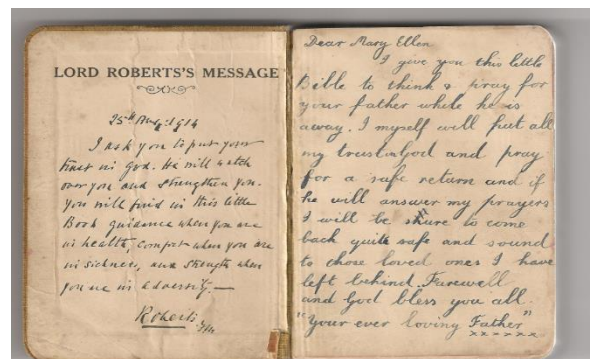 LORD ROBERTS'S MESSAGE
25th Aug. 1914
I ask you to put your
trust in God. He will watch
over you and strengthen you.
You will find in this little
Book guidance when you are
in health, comfort when you are
in sickness, and strength when
you are in adversity.—
Roberts
F.M.
Dear Mary Ellen
I give you this little
Bible to think & pray for
your father while he is
away. I myself will put all
my trust in God and pray
for a safe return and if
he will answer my prayers
I will be shure to come
back quite safe and sound
to those loved ones I have
left behind. Farewell
and God bless you all.
"Your ever loving Father"
xxxxxx